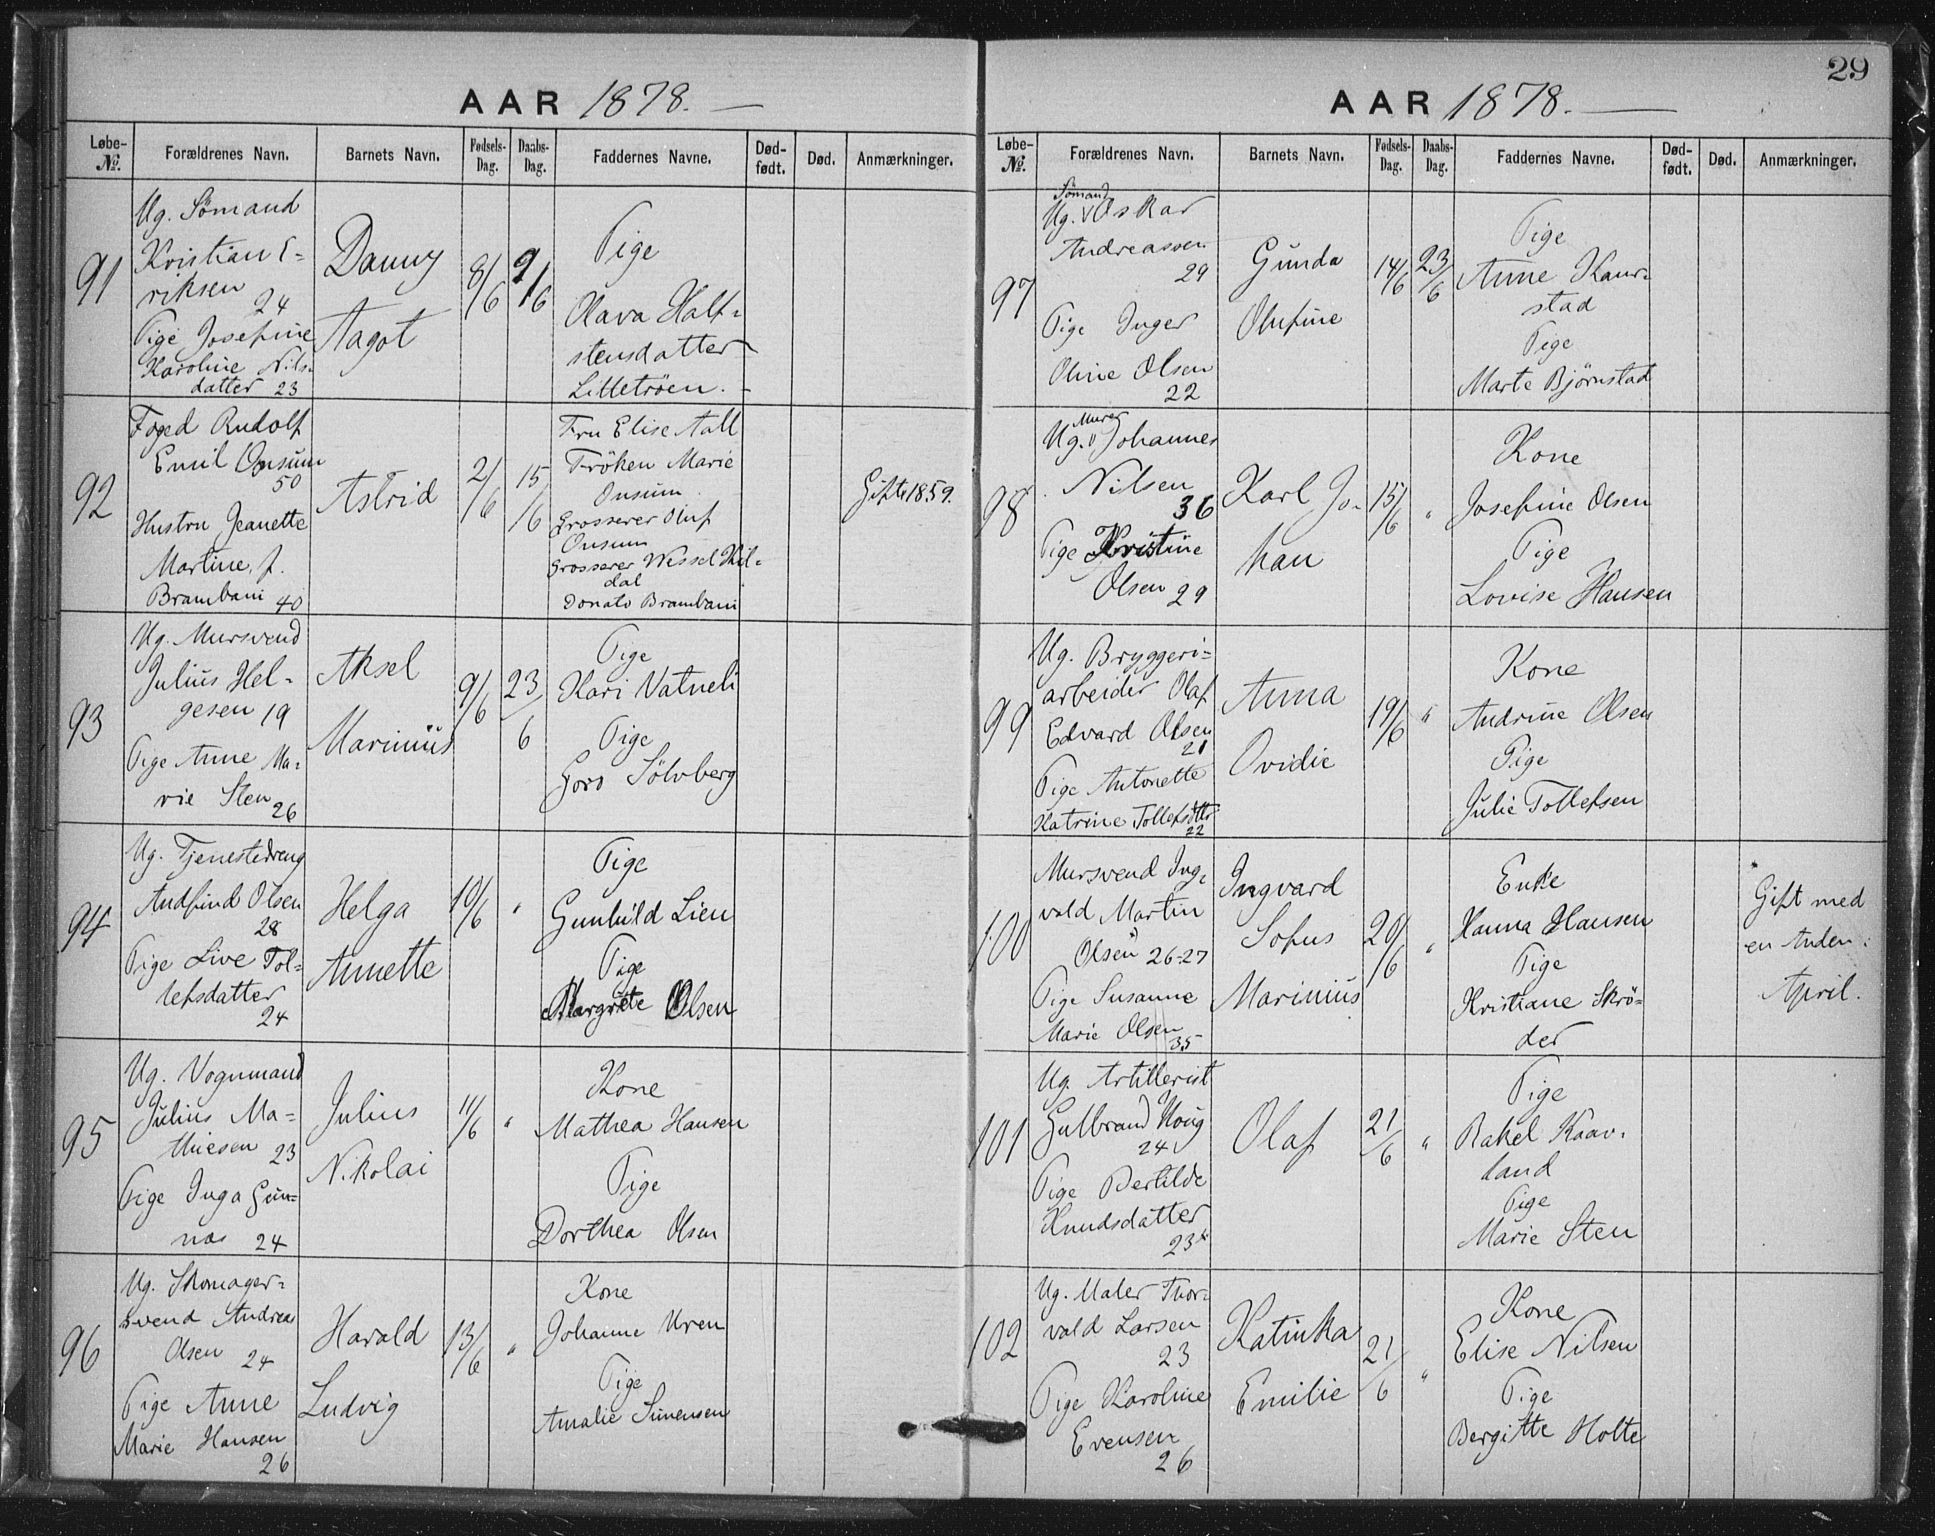 AAR 1878.
Løbe-No.
Forældrenes Navn.
Barnets Navn.
Fødsels-Dag.
Daabs-Dag.
Faddernes Navne.
Død-født.
Død.
Anmærkninger.
91
Ug. Sömand
Kristian E-
riksen
24
Pige Josefine
Karoline Nils-
datter 23
Danny
Aagot
8/6
9/6
Pige
Olava Halt-
stensdatter
Lilletröen.
92
Foged Rudolf
Emil Onsum
50
Hustru Jeanette
Martine, f.
Brambani 40
Astrid
2/6
15/6
Fru Elise Aall
Fröken Marie
Onsum
Grosserer Oluf
Onsum
Grosserer Wessel Hil-
dal
Donato Brambani
Gifte 1859.
93
Ug. Mursvend
Julius Hel-
gesen 19
Pige Anne Ma-
rie Sten
26
Aksel
Marinius
9/6
23/6
Pige
Kari Vatneli
Pige
Goro Sölvberg
94
Ug. Tjenestedreng
Andfind Olsen
28
Pige Live Tol-
lefsdatter
24
Helga
Annette
10/6
"
Pige
Gunhild Lien
Pige
Margrete Olsen
95
Ug. Vognmand
Julius Ma-
thiesen 23
Pige Inga Gun-
nas 24
Julius
Nikolai
11/6
"
Kone
Mathea Hansen
Pige
Dorthea Olsen
96
Ug. Skomager-
svend Andreas
Olsen 24
Pige Anne
Marie Hansen
26
Harald
Ludvig
13/6
"
Kone
Johanne Uren
Pige
Amalie Simensen
29
AAR 1878.
Løbe-No.
Forældrenes Navn.
Barnets Navn.
Fødsels-Dag.
Daabs-Dag.
Faddernes Navne.
Død-født.
Død.
Anmærkninger.
97
Sömand
Ug. Oskar
Andreassen
29
Pige Inger
Oline Olsen
22
Gunda
Olufine
14/6
23/6
Pige
Anne Kaur-
stad
Pige
Marte Bjørnstad
98
Murer
Ug. Johannes
Nilsen
36
Pige Kristine
Olsen 29
Karl Jo-
han
15/6
"
Kone
Josefine Olsen
Pige
Lovise Hansen
99
Ug. Bryggeri-
arbeider Olaf
Edvard Olsen
21
Pige Antonette
Katrine Tollefsdttr
22
Anna
Ovidie
19/6
"
Kone
Andrine Olsen
Pige
Julie Tollefsen
100
Mursvend Ing-
vald Martin
Olsen 26-27
Pige Susanne
Marie Olsen
35
Ingvard
Sofus
Marinius
20/6
"
Enke
Hanna Hansen
Pige
Kristiane Skrö-
der
Gift med
en Anden
April.
101
Ug. Artillerist
Gulbrand Houg
24
Pige Bertilde
Knudsdatter
23
Olaf
21/6
"
Pige
Rakel Kaav-
land
Pige
Marie Sten
102
Ug. Maler Thor-
vald Larsen
23
Pige Karoline
Evensen
26
Katinka
Emilie
21/6
"
Kone
Elise Nilsen
Pige
Bergitte Holte